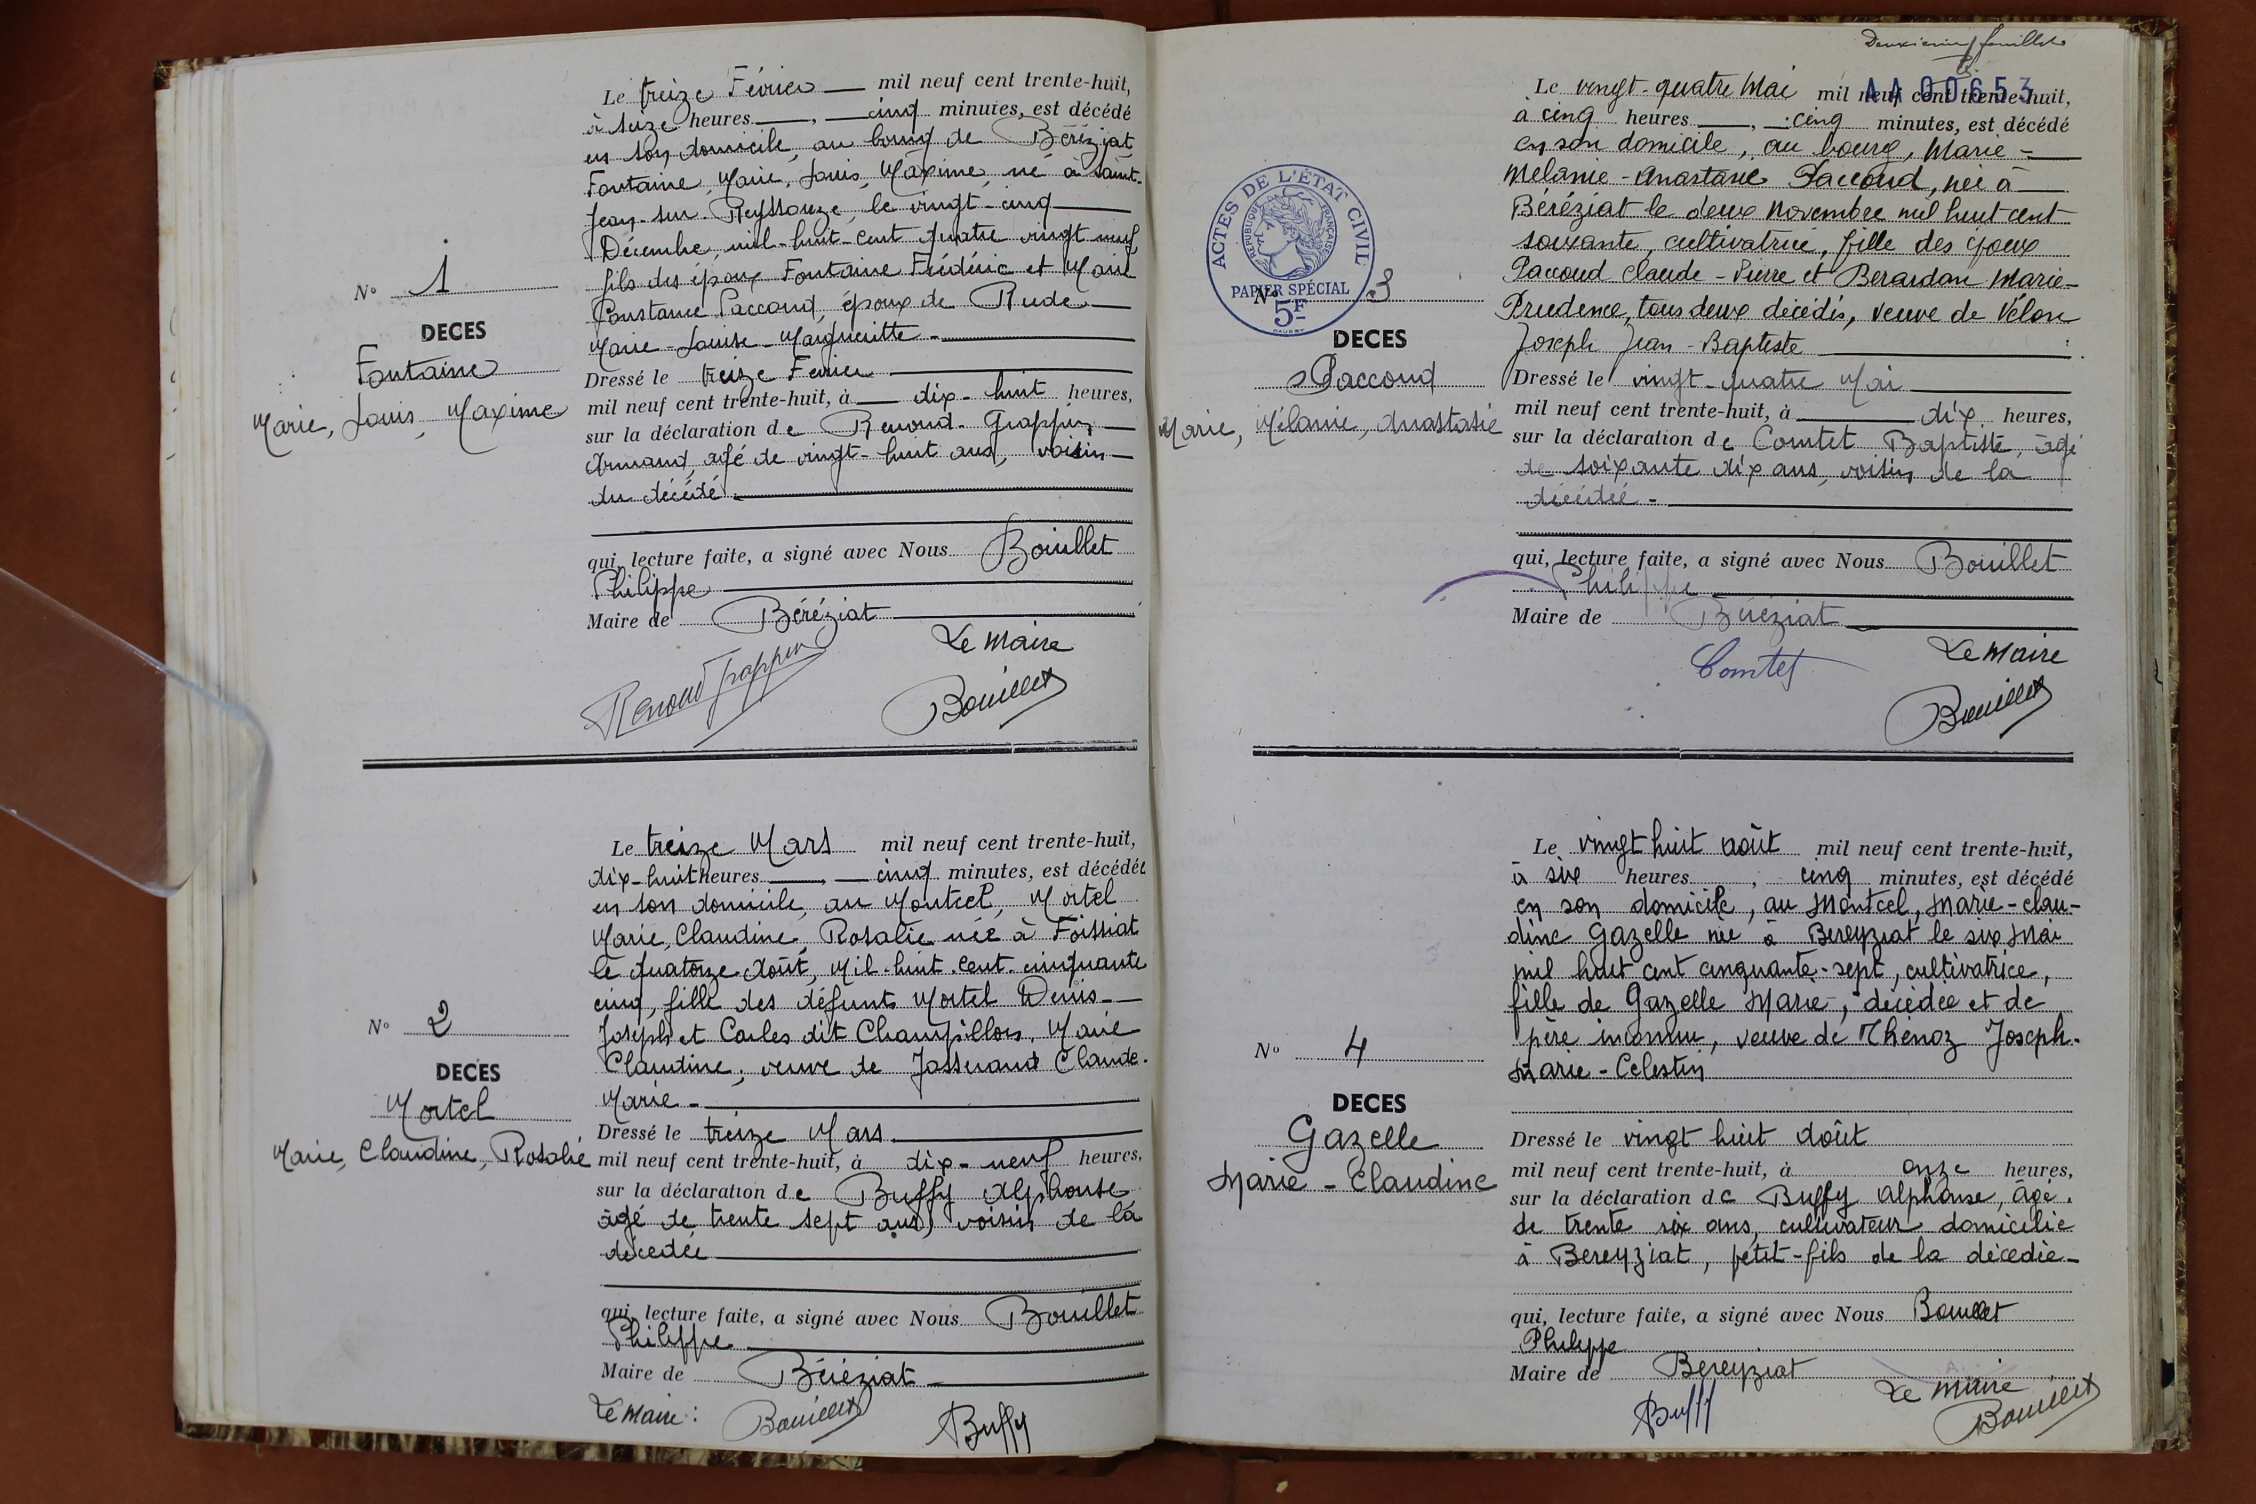 Le treize Février mil neuf cent trente-huit,
à seize heures, cinq minutes, est décédé
en son domicile, au bourg de Béréziat,
Fontaine, Marie, Louis, Maxime, né à Saint-
Jean-sur-Reyssouze, le vingt-cinq
Décembre, mil-huit-cent quatre vingt neuf,
fils des époux Fontaine Frédéric et Marie
Constance Paccoud, époux de Rude
Marie-Louise-Marguerite.
N° 1
DECES
Fontaine
Marie, Louis, Maxime
Dressé le treize Février
mil neuf cent trente-huit, à dix-huit heures,
sur la déclaration de Renoud-Grappin,
Armand, agé de vingt-huit ans, voisin
du décédé.
qui, lecture faite, a signé avec Nous Bouillet
Philippe
Maire de Béréziat
Le Maire
Renoud Grappin
Bouillet
Le treize Mars mil neuf cent trente-huit,
dix-huit heures, cinq minutes, est décédée
en son domicile, au Montcel, Mortel
Marie, Claudine, Rosalie née à Foissiat
le quatorze Août, mil-huit-cent-cinquante
cinq, fille des défunts Mortel Denis-
Joseph et Carles dit Champillon, Marie
Claudine, veuve de Jasserand Claude-
Marie-
N° 2
DECES
Mortel
Marie, Claudine, Rosalie
Dressé le treize Mars
mil neuf cent trente-huit, à dix-neuf heures,
sur la déclaration de Buffy Alphonse
âgé de trente sept ans, voisin de la
décédée
qui, lecture faite, a signé avec Nous Bouillet
Philippe
Maire de Béréziat
Le Maire:
Bouillet
Buffy
Deuxième feuillet
AA 00653
Le vingt-quatre Mai mil neuf cent trente-huit,
à cinq heures, cinq minutes, est décédé
en son domicile, au bourg, Marie-
Mélanie-Anastasie Paccoud, née à
Béréziat le deux Novembre mil huit cent
soixante, cultivatrice, fille des époux
Paccoud Claude-Pierre et Berardan Marie-
Prudence, tous deux décédés, veuve de Vélon
Joseph Jean-Baptiste
ACTES DE L'ÉTAT CIVIL
REPUBLIQUE FRANÇAISE
PAPIER SPÉCIAL
5F
N° 3
DECES
Paccoud
Marie, Mélanie, Anastasie
Dressé le vingt-quatre Mai
mil neuf cent trente-huit, à dix heures,
sur la déclaration de Comtet Baptiste, âgé
de soixante dix ans, voisin de la
décédée-
qui, lecture faite, a signé avec Nous Bouillet
Philippe
Maire de Béréziat
Le Maire
Comtet
Bouillet
Le vingt huit août mil neuf cent trente-huit,
à six heures, cinq minutes, est décédé
en son domicile, au Montcel, Marie-Clau-
dine Gazelle née à Bereyziat le six Mai
mil huit cent cinquante-sept, cultivatrice,
fille de Gazelle Marie, décédée et de
père inconnu, veuve de Thénoz Joseph-
Marie-Celestin
N° 4
DECES
Gazelle
Marie-Claudine
Dressé le vingt huit Août
mil neuf cent trente-huit, à onze heures,
sur la déclaration de Buffy Alphonse, âgé
de trente six ans, cultivateur domicilié
à Bereyziat, petit-fils de la décédée-
qui, lecture faite, a signé avec Nous Bouillet
Philippe
Maire de Bereyziat
Le Maire
Buffy
Bouillet